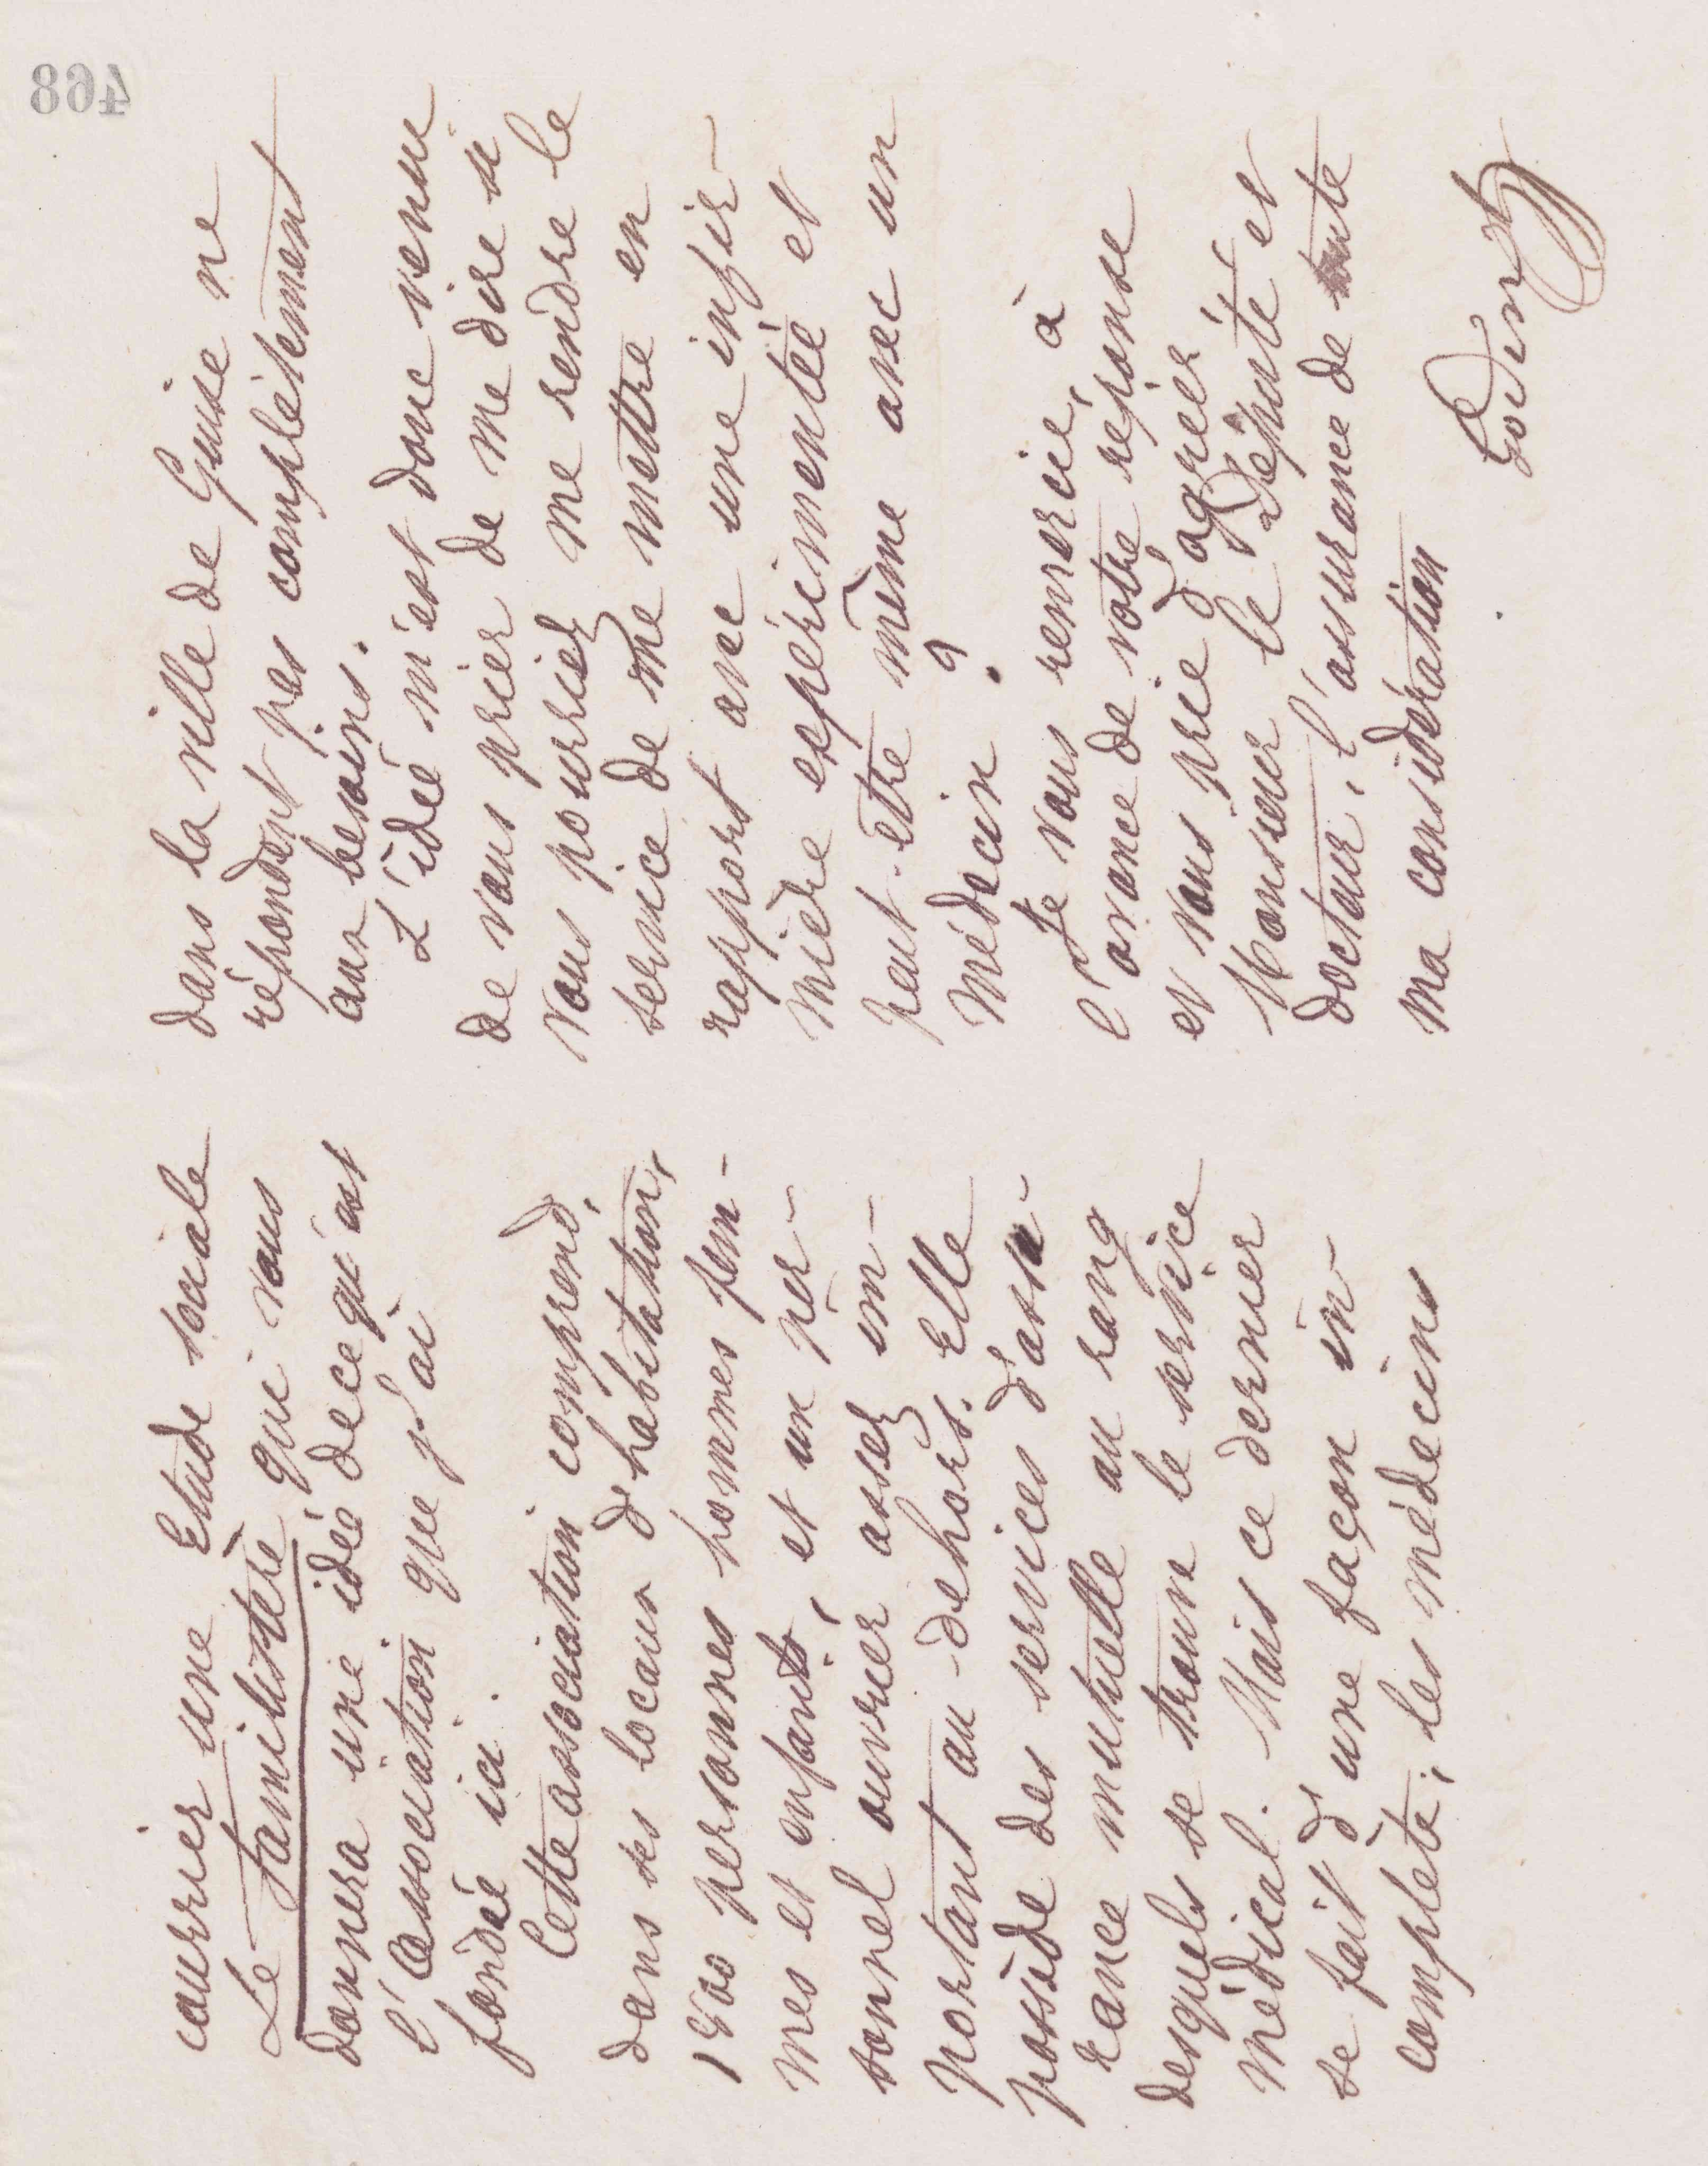 courrier une Etude sociale
Le Familistère qui vous
donnera une idée de ce qu'est
l'Association que j'ai
fondée ici.
Cette association comprend,
dans ses locaux d'habitation,
1800 personnes hommes fem-
mes et enfants, et un per-
sonnel ouvrier assez im-
portant au-dehors. Elle
possède des services d'assu-
rance mutuelle au rang
desquels se trouve le service
médical. Mais ce dernier
se fait d'une façon in-
complète; les médecins
dans la ville de Guise ne
répondent pas complètement
aux besoins.
L'idée m'est donc venue
de vous prier de me dire si
vous pourriez me rendre le
service de me mettre en
rapport avec une infir-
mière expérimentée et
peut-être même avec un
médecin ?
Je vous remercie, à
l'avance de votre réponse
et vous prie d'agréer
Monsieur le Député et
docteur, l'assurance de toute
ma considération
Godin
468